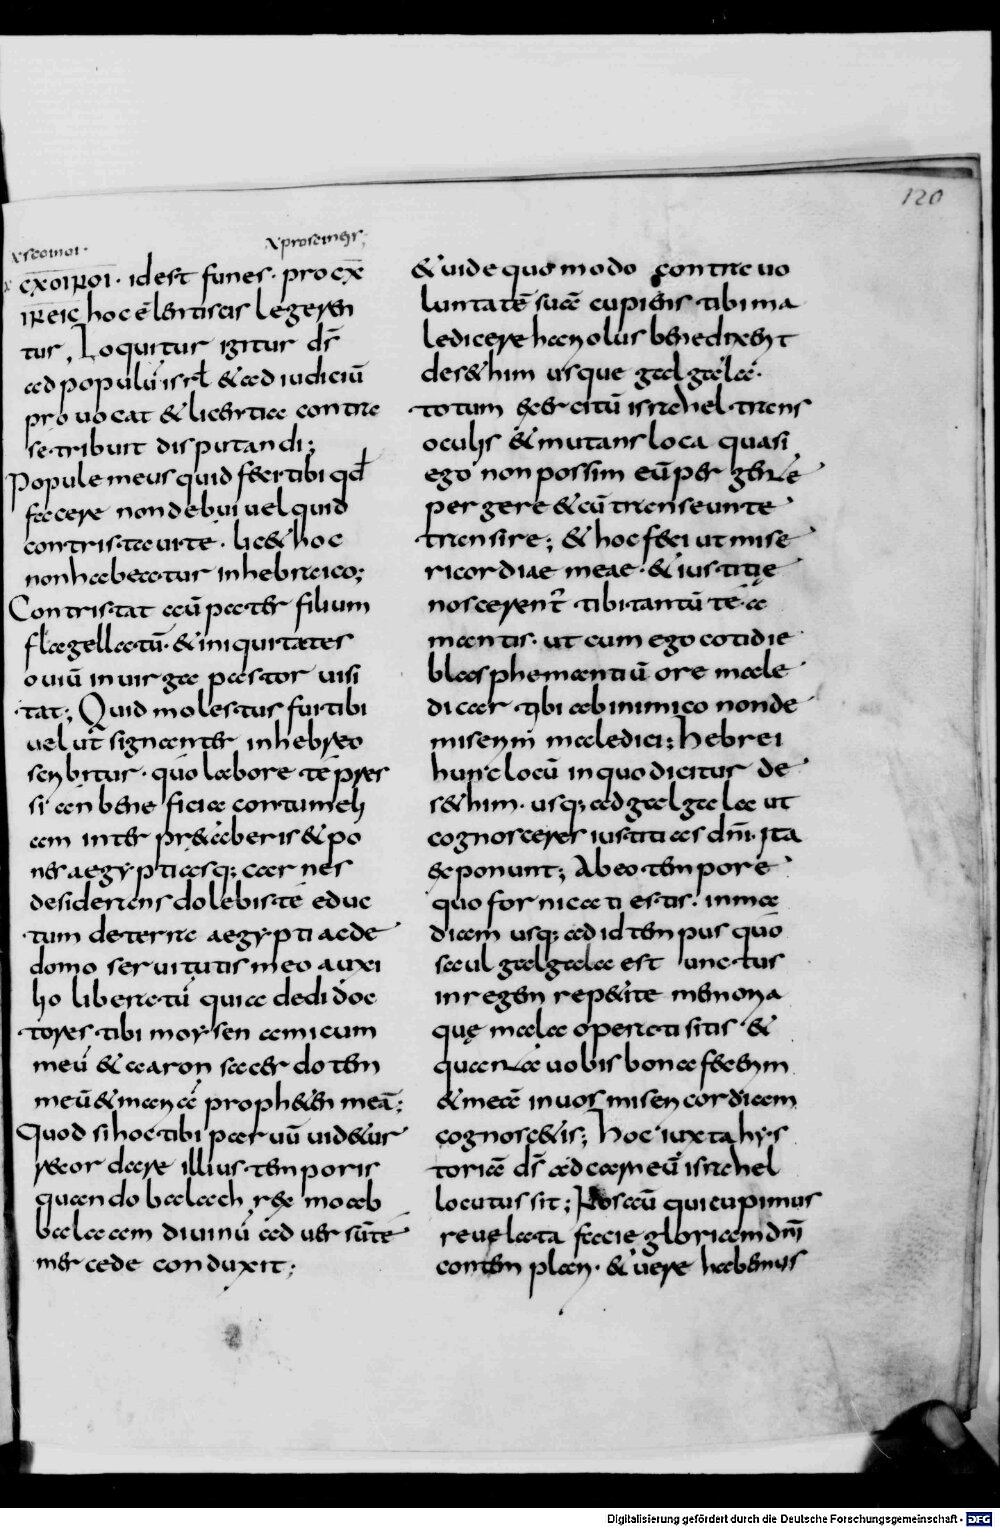 120
CXOIPOI · idest funes · pro CX
IPEIC hoc ē lentiscis legeren
tur, Loquitur igitur dſ̄
ad populū isrl̄ & ad iudiciū
prouocat & licentia contra
se tribuit disputandi;
Popule meus quid feci tibi qđ
facere non debui uel quid
contristaui te · lic& hoc
non habeatur in hebraico;
Contristat eū pater filium
flagellatū · & iniquitates
ouiū in uirga pastor uisi
tat; Quid molestus fui tibi
uel ut signanter in hebreo
scribitur · quo labore te pres
si an beneficia contumeli
am inter pr&eberis & po
nes aegyptiasq; carnes
desiderans doles te educ
tum de terra aegypti ac de
domo seruitutis meo auxi
lio liberatū quia dedi doc
tores tibi moysen amicum
meū & aaron sacerdotem
meū & mariā proph&en meā;
Quod si hoc tibi paruū uid&ur
recordare illius temporis
quando balach rex moab
balaam diuinū aduersū te
mercede conduxit;
& uide quo modo contra uo
luntatē suā cupiens tibi ma
ledicere hariolus benedixerit
de s&him usque galgalā ·
totum exercitū israhel trans
oculis & mutans loca quasi
ego non possim eū per gere
pergere & cū transeunte
transire; & hoc feci ut mise
ricordiae meae · & iustitię
noscerent tibi tantū te a
mantis · ut cum ego cotidie
blasphemantiū ore male
dicar tibi ab inimico non de
miserim maledici; Hebrei
hunc locū in quo dicitur de
s&him · usq; ad galgala ut
cognosceres iustitias dn̄i · ita
exponunt; Ab eo tempore
quo fornicati estis · in ma
diam usq; ad id tempus quo
saul galgala est unctus
in regem rep&ite memoria
quę mala operati sitis &
quanta uobis bona fecerim
& meā in uos misericordiam
cognosc&is; Hoc iuxta hys
toriā dſ̄ ad carneū israhel
locutus sit; Nos aū qui cupimus
reuelata facie gloriam dn̄i
contemplari · & uere habemus
Digitalisierung gefördert durch die Deutsche Forschungsgemeinschaft - DFG